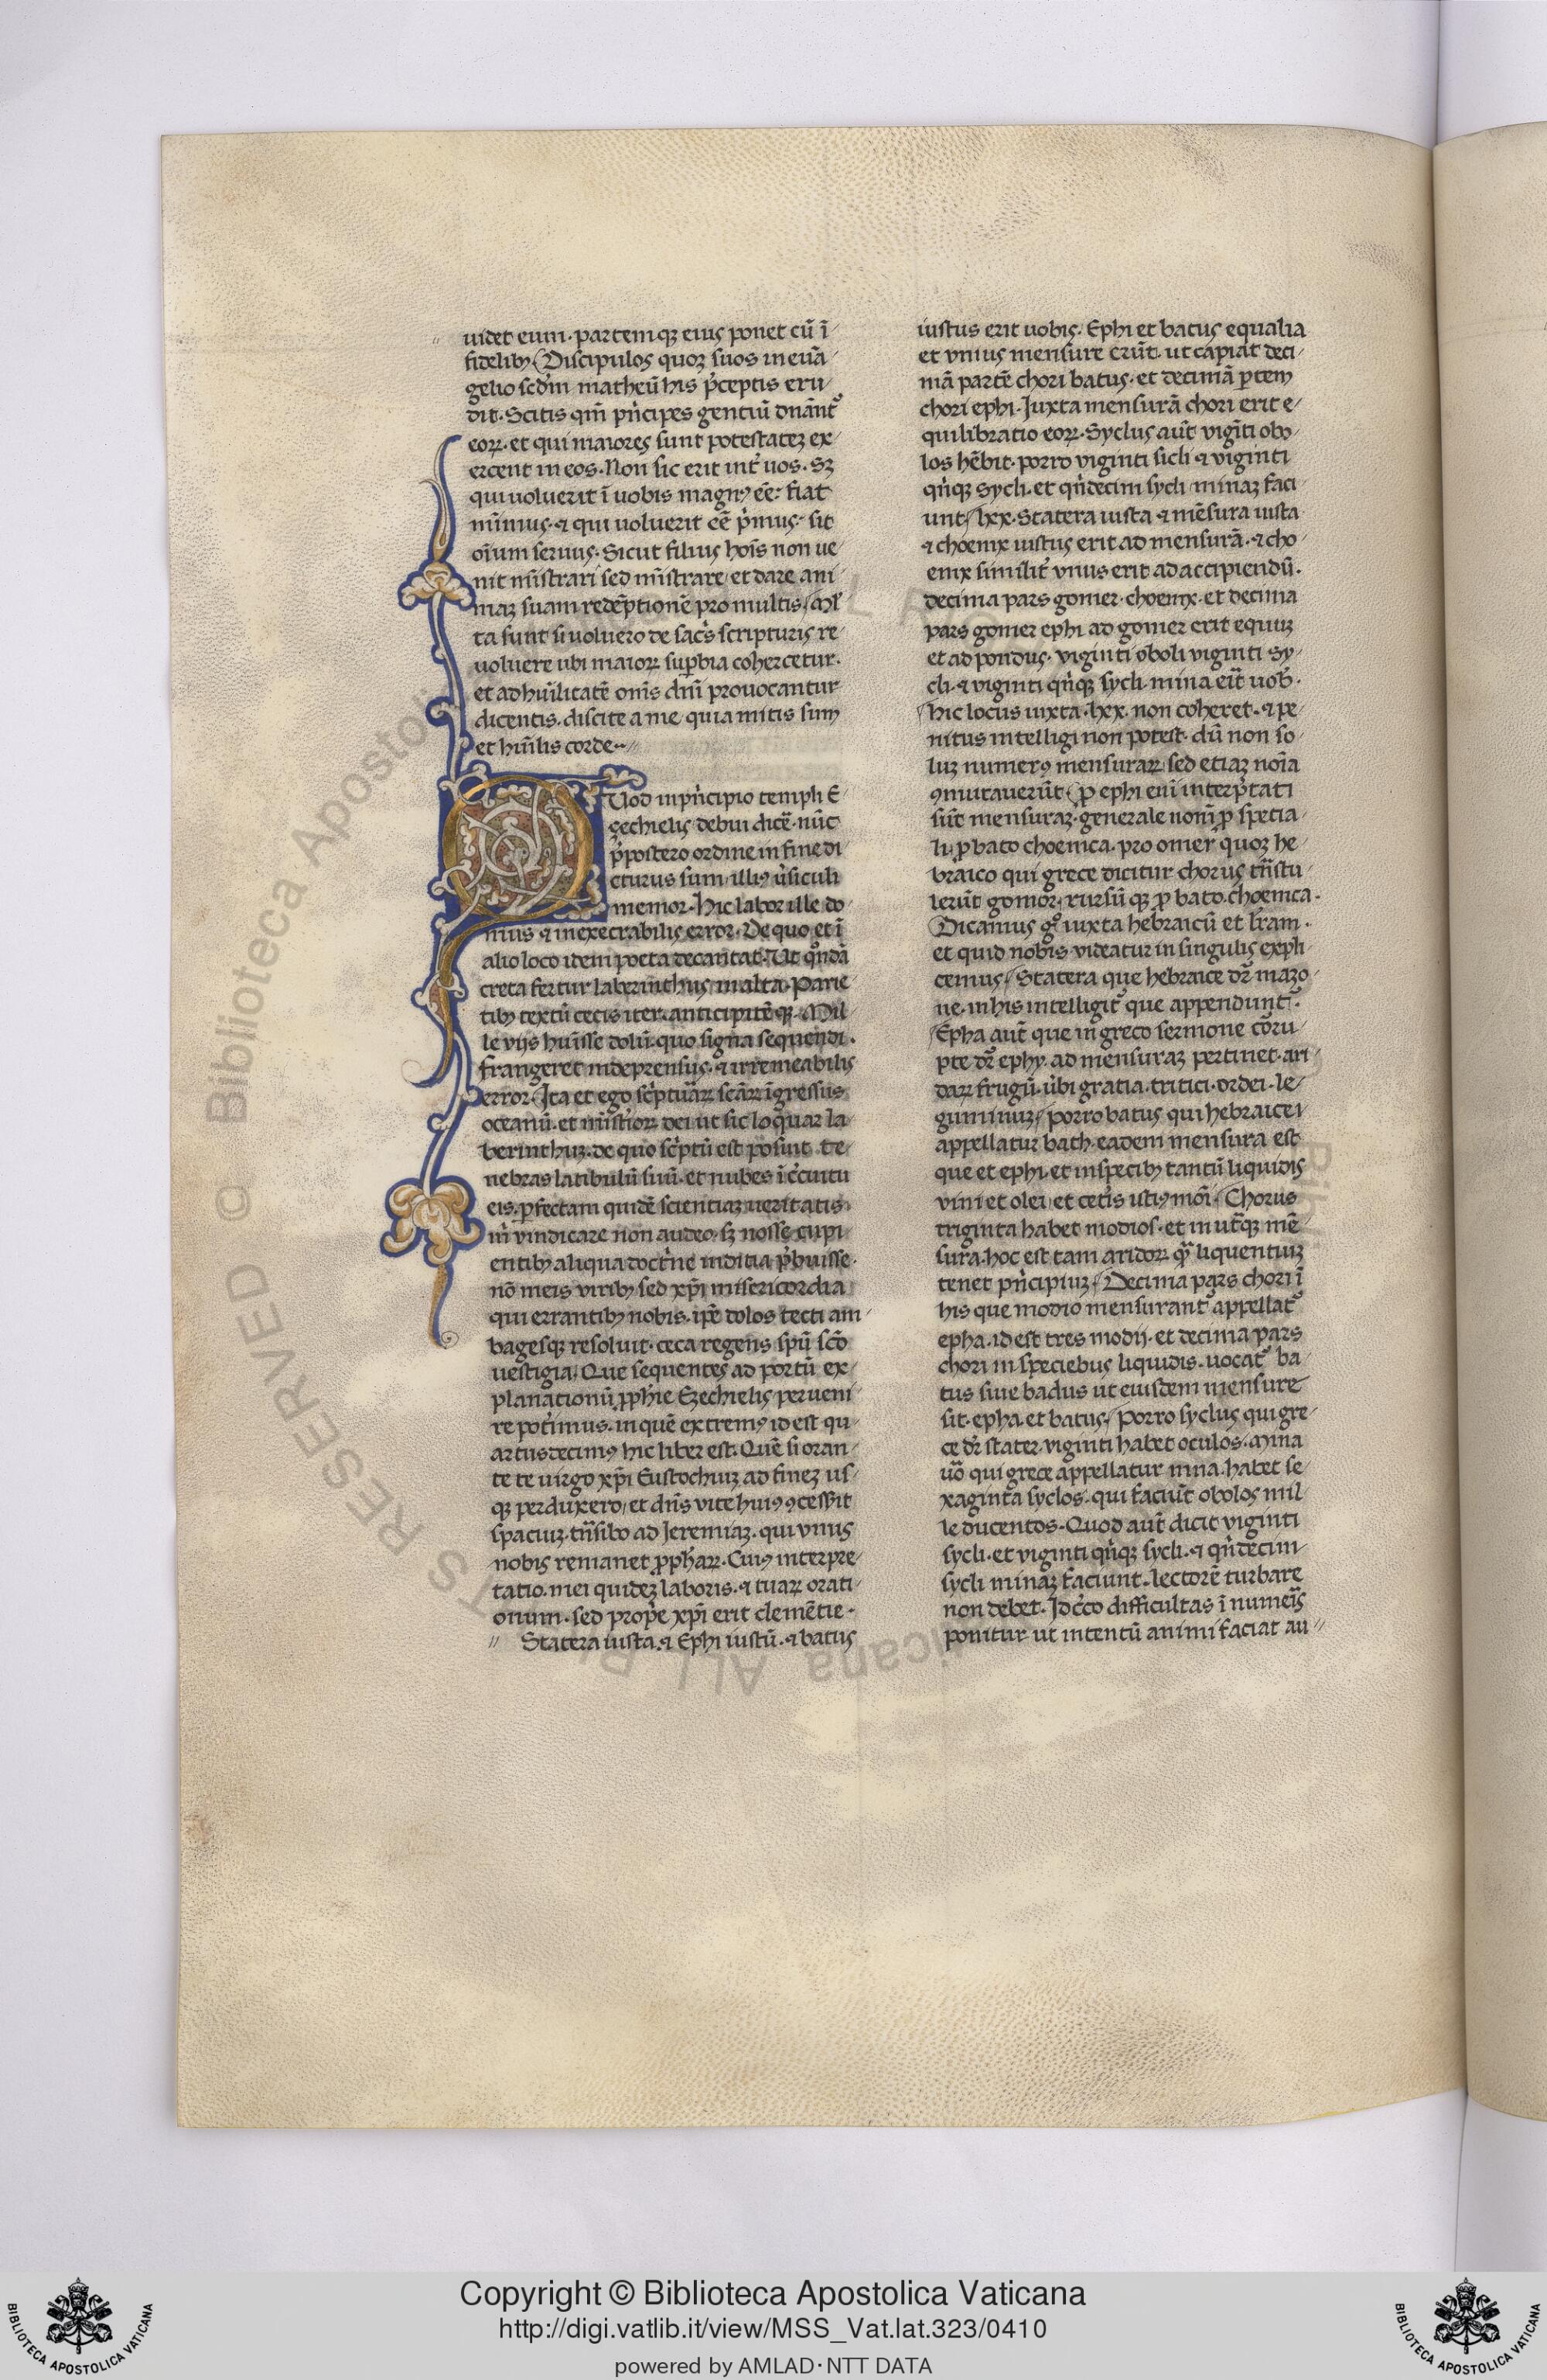 uidet eum. partemqꝫ eius ponet cū ī
fidelibꝫ. Discipulos quoqꝫ suos in euā
gelio scd̄m matheū his p̄ceptis eru
dit. Scitis qm̄ pn̍cipes gentiū dnānt᷑
eoꝝ. et qui maiores sunt potestateꝫ ex
ercent in eos. Non sic erit int̄ uos. Sꝫ
qui uoluerit ī uobis magnꝰ eē: fiat
mīnus. ⁊ qui uoluerit eē p̍mus. sit
oīum seruus. Sicut filius hoīs non ue
nit mīstrari sed mīstrare et dare ani
maꝫ suam redēptionē pro multis. Ml̄
ta sunt si uoluero de sac̍s scripturis re
uoluere ubi maioꝝ suꝑbia cohercetur.
et ad hūilitatē om̄s dn̄i prouocantur
dicentis. discite a me quia mitis sum
et hūilis corde.
QUod in pn̍cipio templi E
zechielis debui dicē. nūc
p̄postero ordine in fine di
cturus sum. illiꝰ u̍siculi
memor. Hic labor ille do
mus ⁊ inexecrabilis error. De quo et ī
alio loco idem poeta decantat. Ut qͦndā
creta fertur laberinthus in alta. Parie
tibꝫ textū cecis iter. anticipitē qꝫ. Mil
le vijs huīsse dolū. quo signa sequendi.
frangeret indeprensus. ⁊ irremeabilis
error. Ita et ego sc̍ptuāꝝ scāꝝ īgressus
oceanū. et mīstioꝝ dei ut sic loquar la
berinthuꝫ. de quo sc̍ptū est posuit te
nebras latibulū suū. et nubes ī c̍cuitu
eis. ꝑfectam quidē scientiaꝫ ueritatis
m̍ vindicare non audeo. sꝫ nosse cupi
entibꝫ aliqua doct̍ne inditia p̄buisse.
nō meis viribꝫ sed xp̄i misericordia
qui errantibꝫ nobis. ip̄e dolos tecti am
bagesqꝫ resoluit. ceca regens spū scō
uestigia. Que sequentes ad portū ex
planationū ꝓph̄ie Ezechielis perueni
re pot̍imus. in quē extremꝰ id est qu
artusdecimꝰ hic liber est. Quē si oran
te te uirgo xp̄i Eustochiuꝫ ad fineꝫ us
qꝫ perduxero, et dn̄s vite huiꝰ ꝯcesserit
spaciuꝫ. tn̄sibo ad Jeremiaꝫ. qui vnus
nobis remanet ꝓph̄aꝝ. Cuiꝰ interpre
tatio. mei quideꝫ laboris. ⁊ tuaꝝ orati
onum. sed prop̍e xp̄i erit clemētie.
Statera iusta. ⁊ Ephi iustū. ⁊ batus
iustus erit uobis. Ephi et batus equalia
et vnius mensure erūt. ut capiat deci
mā partē chori batus. et decimā ꝑtem
chori ephi. Juxta mensurā chori erit e
quilibratio eoꝝ. Syclus aūt vigīti obo
los hēbit. porro viginti sicli ⁊ viginti
qn̍qꝫ sycli. et qn̍decim sycli minaꝫ faci
unt. lxx. Statera iusta ⁊ mēsura iusta
⁊ choenix iustus erit ad mensurā. ⁊ cho
enix similit̄ vnus erit ad accipiendū.
decima pars gomer choenix. et decima
pars gomer ephi ad gomer erit equuꝫ
et ad pondus. viginti oboli viginti sy
cli. ⁊ viginti qn̍qꝫ sycli. mina erit uob̄.
Hic locus iuxta .lxx. non coheret. ⁊ pe
nitus intelligi non potest. dū non so
luꝫ numerꝰ mensuraꝝ. sed etiaꝫ noīa
ꝯmutauerūt. Pro ephi eni interp̄tati
sūt mensuraꝫ. generale nom̄ ꝓ specia
li. ꝓ bato choenica. pro omer quoqꝫ he
braico qui grece dicitur chorus tn̄stu
lerūt gomor. rursū qꝫ ꝓ bato. choenica.
Dicamus gͦ iuxta hebraicū et lr̄am.
et quid nobis videatur in singulis expli
cemus. Statera que hebraice dr̄ mazo
ne. in his intelligit᷑ que appendunt᷑.
Epha aūt que in greco sermone cōru
pte dr̄ ephy. ad mensuraꝫ pertinet. ari
daꝝ frugū. u̍bi gratia. tritici. ordei. le
guminuꝫ. Porro batus qui hebraice
appellatur bath. eadem mensura est
que et ephi. et in specibꝫ tantū liquidis
vini et olei et cet̍is ustꝰmōi. Chorus
triginta habet modios. et in ut̍qꝫ mē
sura. hoc est tam aridoꝝ qͣ liquentiuꝫ
tenet pn̍cipiuꝫ. Decima pars chori ī
his que modio mensurant᷑ appellat᷑
epha. id est tres modij. et decima pars
chori in speciebus liquidis. uocat᷑ ba
tus siue badus ut eiusdem mensure
sit. epha. et batus. Porro syclus qui gre
ce dr̄ stater viginti habet oculos. Mina
uō qui grece appellatur mna. habet se
xaginta syclos. qui faciūt obolos mil
le ducentos. Quod aūt dicit viginti
sycli. et viginti qn̍qꝫ sycli. ⁊ qn̍decim
sycli minaꝫ faciunt. lectorē turbare
non debet. Idc̍co difficultas ī numeis
ponitur ut intentū animi faciat au
Copyright © Biblioteca Apostolica Vaticana
http://digi.vatlib.it/view/MSS_Vat.lat.323/0410
powered by AMLAD·NTT DATA
BIBLIOTECA APOSTOLICA VATICANA
BIBLIOTECA APOSTOLICA VATICANA